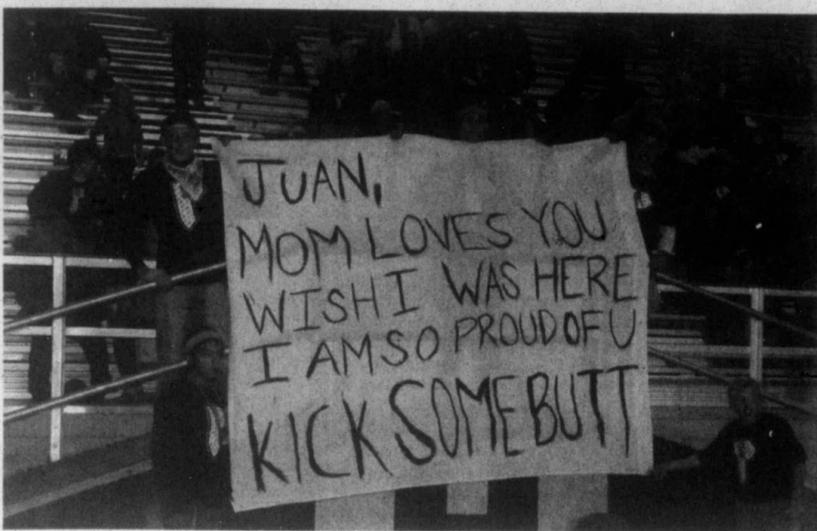 JUAN,
MOM LOVES YOU
WISH I WAS HERE
I AM SO PROUD OF U
KICK SOME BUTT